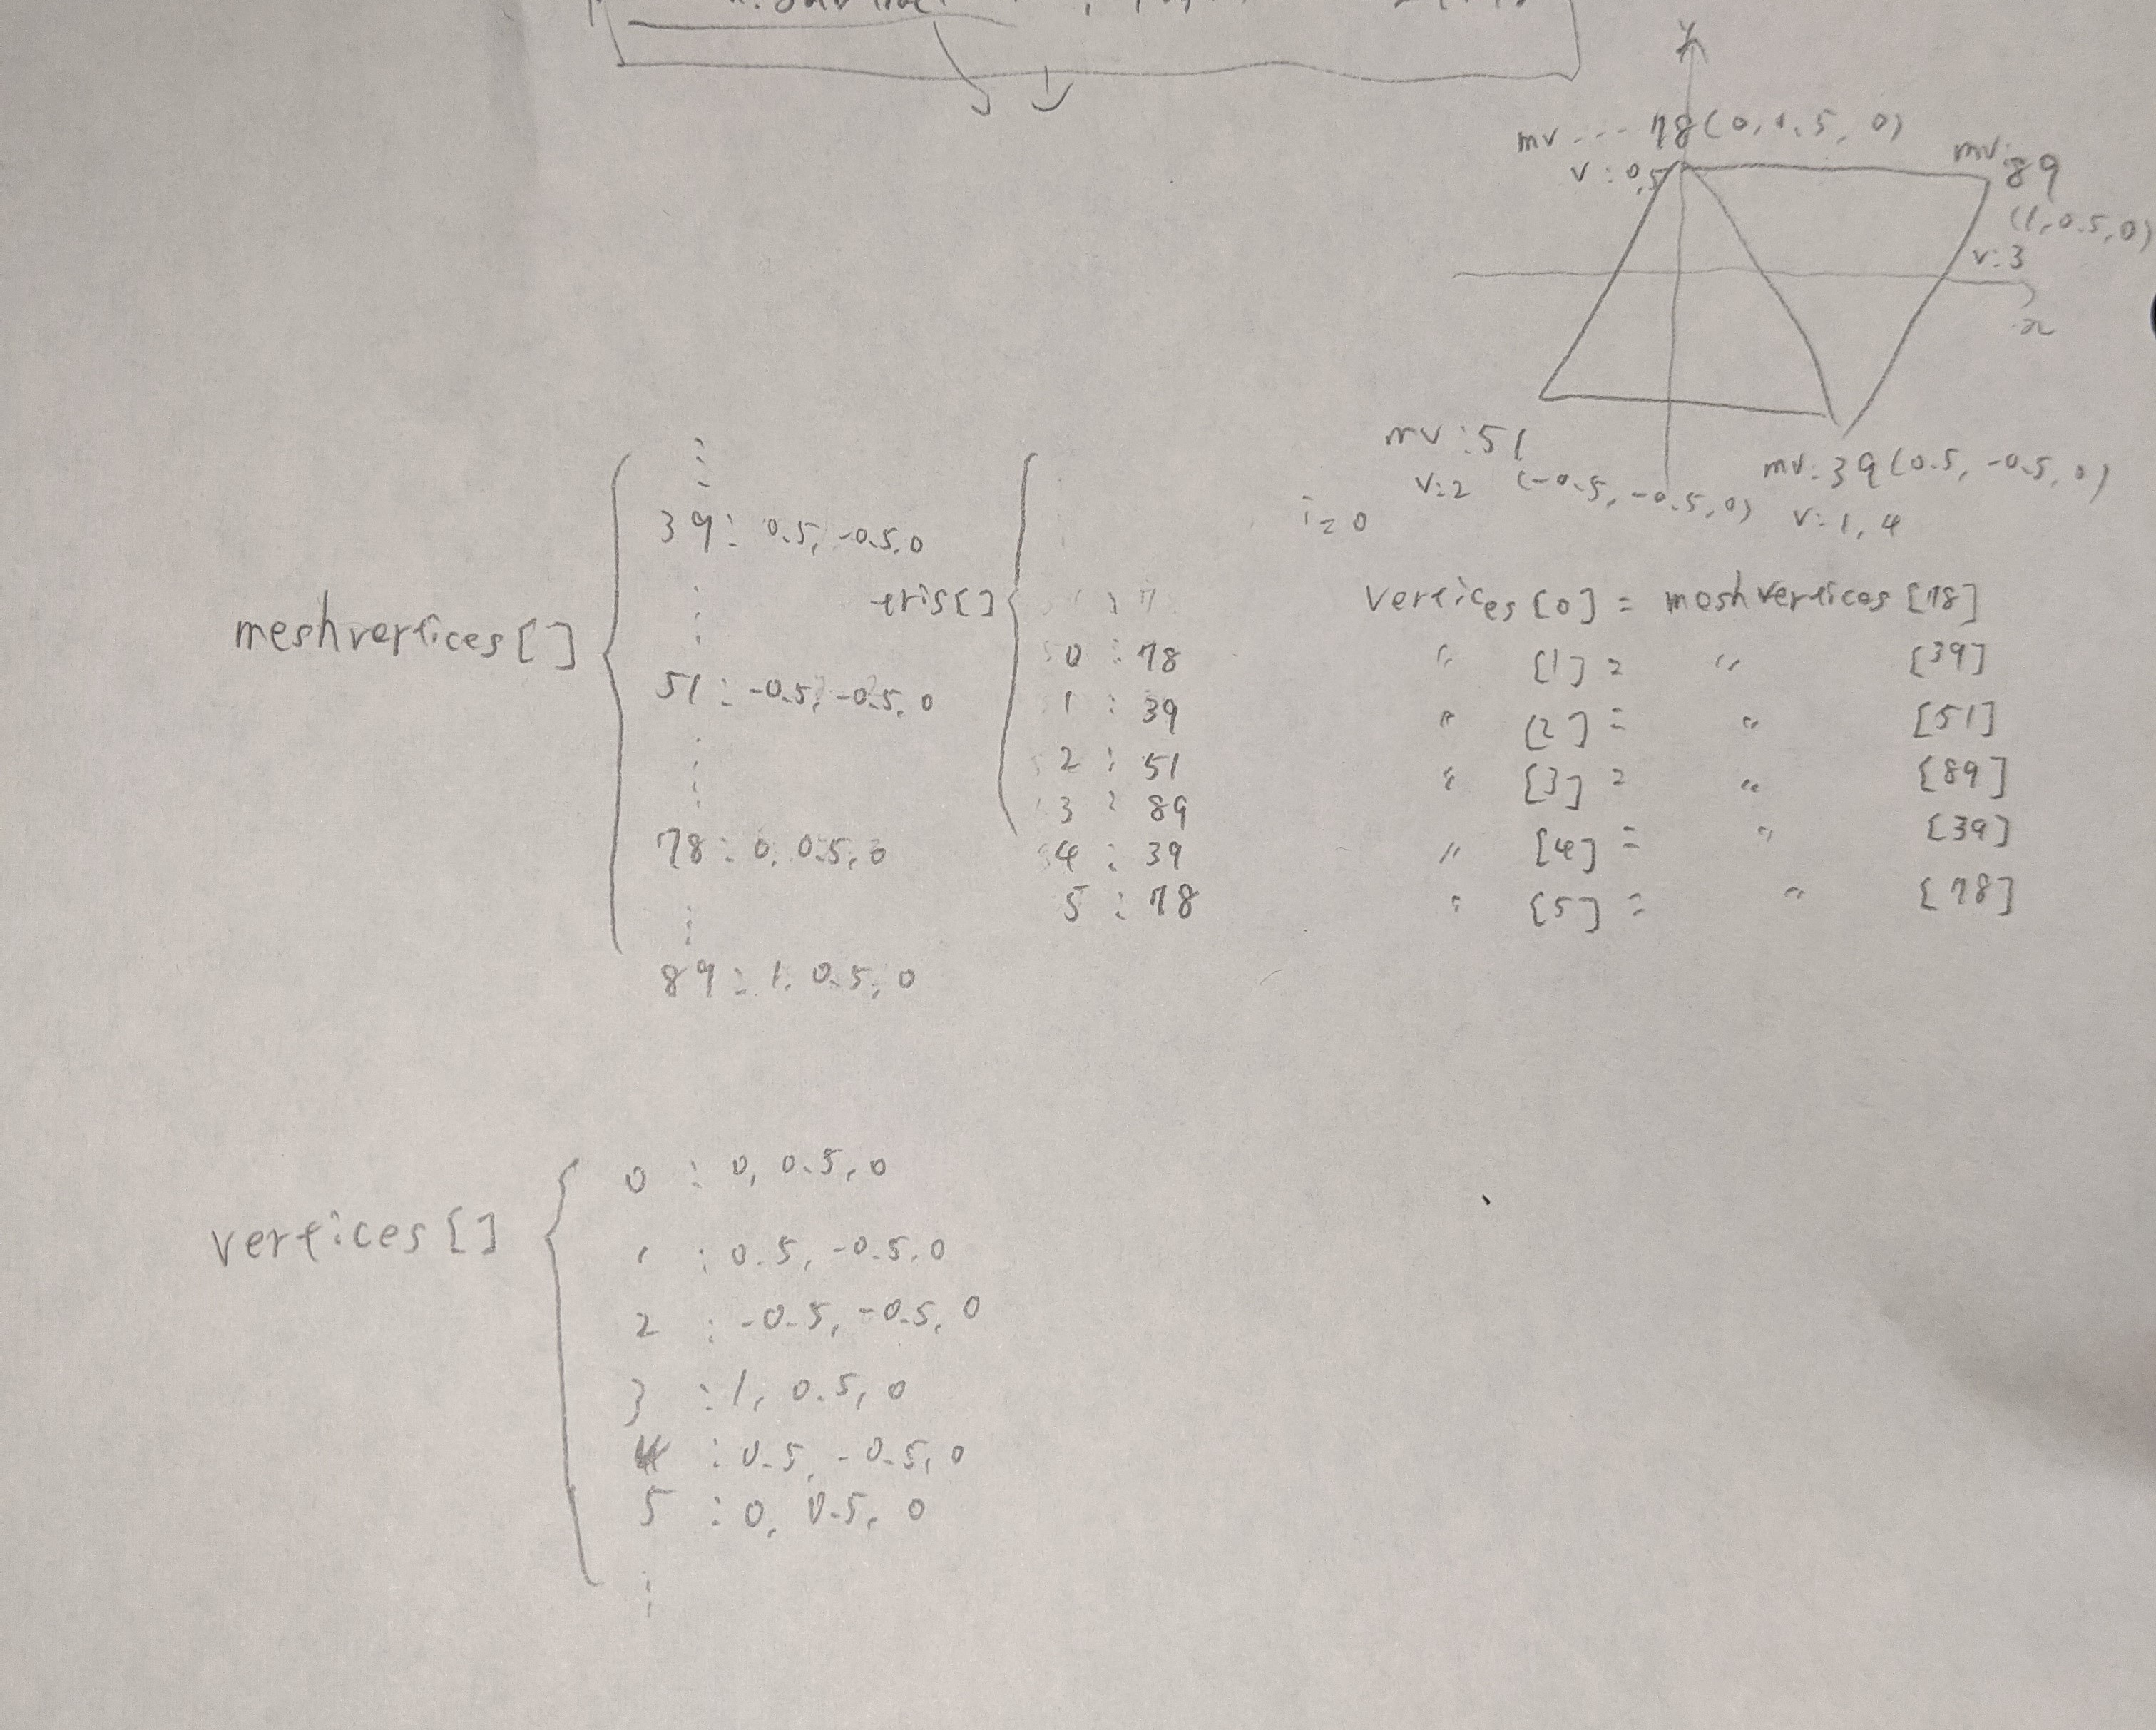 y
mv ... 78 (0, 0.5, 0)
v : 0,5
mv: 89
(1, 0.5, 0)
v: 3
x
mv : 51
v: 2 (-0.5, -0.5, 0)
mv: 39 (0.5, -0.5, 0)
v: 1, 4
meshvertices []
39: 0.5, -0.5, 0
51: -0.5, -0.5, 0
78: 0, 0.5, 0
89: 1, 0.5, 0
tris []
0 : 78
1 : 39
2 : 51
3 : 89
4 : 39
5 : 78
i=0
vertices [0] = meshvertices [78]
〃 [1] = 〃 [39]
〃 [2] = 〃 [51]
〃 [3] = 〃 [89]
〃 [4] = 〃 [39]
〃 [5] = 〃 [78]
vertices []
0 : 0, 0.5, 0
1 : 0.5, -0.5, 0
2 : -0.5, -0.5, 0
3 : 1, 0.5, 0
4 : 0.5, -0.5, 0
5 : 0, 0.5, 0